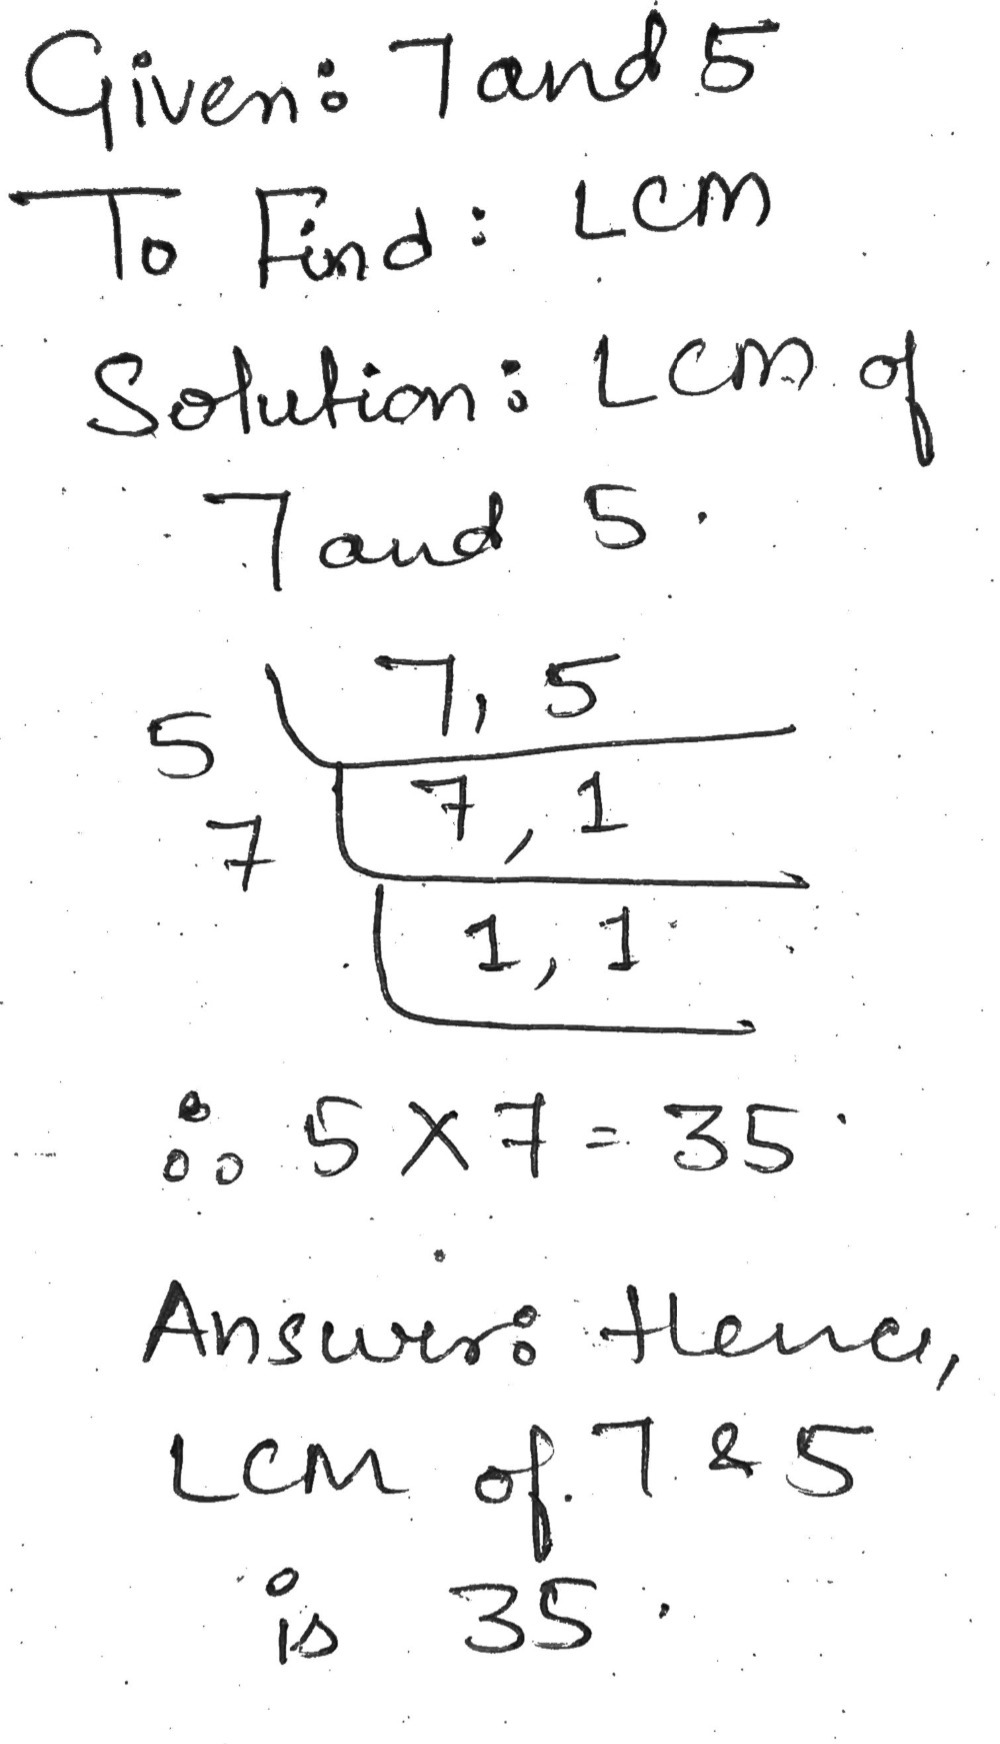 Given: 7 and 5
To Find: LCM
Solution: LCM of
7 and 5.
7, 5
5
7, 1
7
1, 1
∴ 5 × 7 = 35
Answer: Hence,
LCM of 7 & 5
is 35.